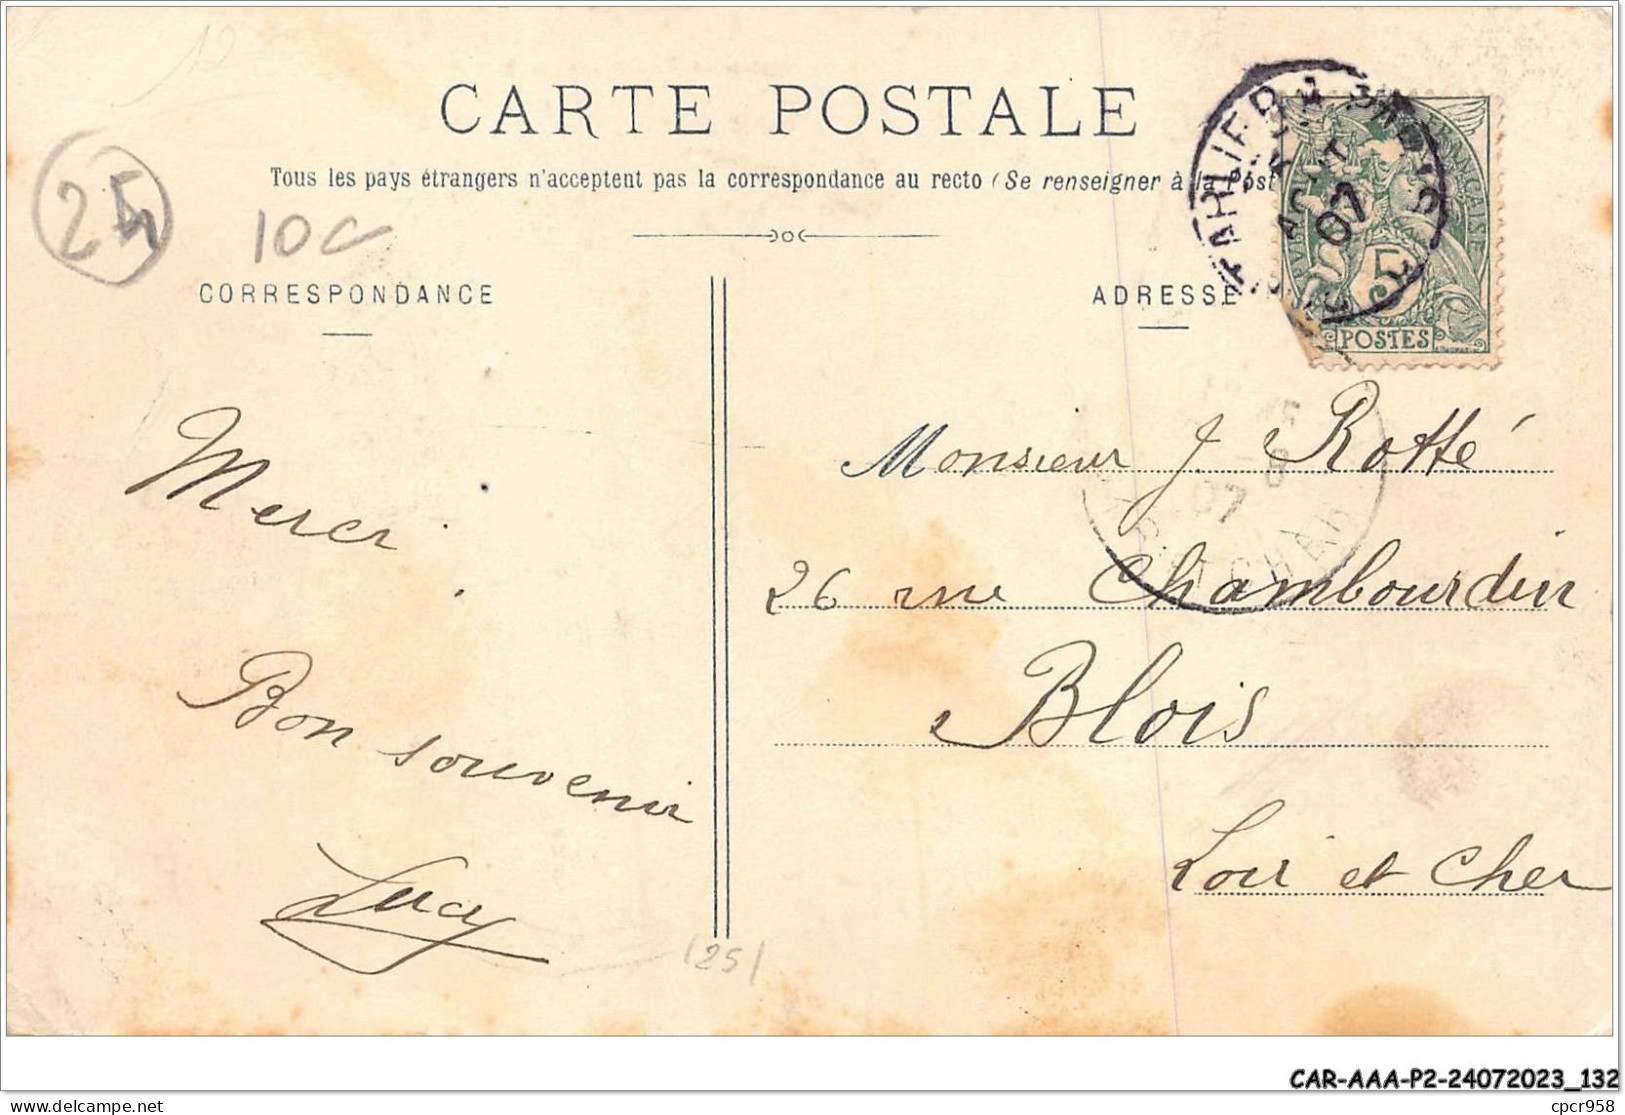 12
CARTE POSTALE
Tous les pays étrangers n'acceptent pas la correspondance au recto (Se renseigner à la Post
25
10c
CORRESPONDANCE
ADRESSE
AOUT
07
5
POSTES
Merci
Bon souvenir
Lucy
Monsieur J. Rotté
26 rue Chambourdin
Blois
Loir et Cher
(25)
CAR-AAA-P2-24072023_132
delcampe.net
cpcr958